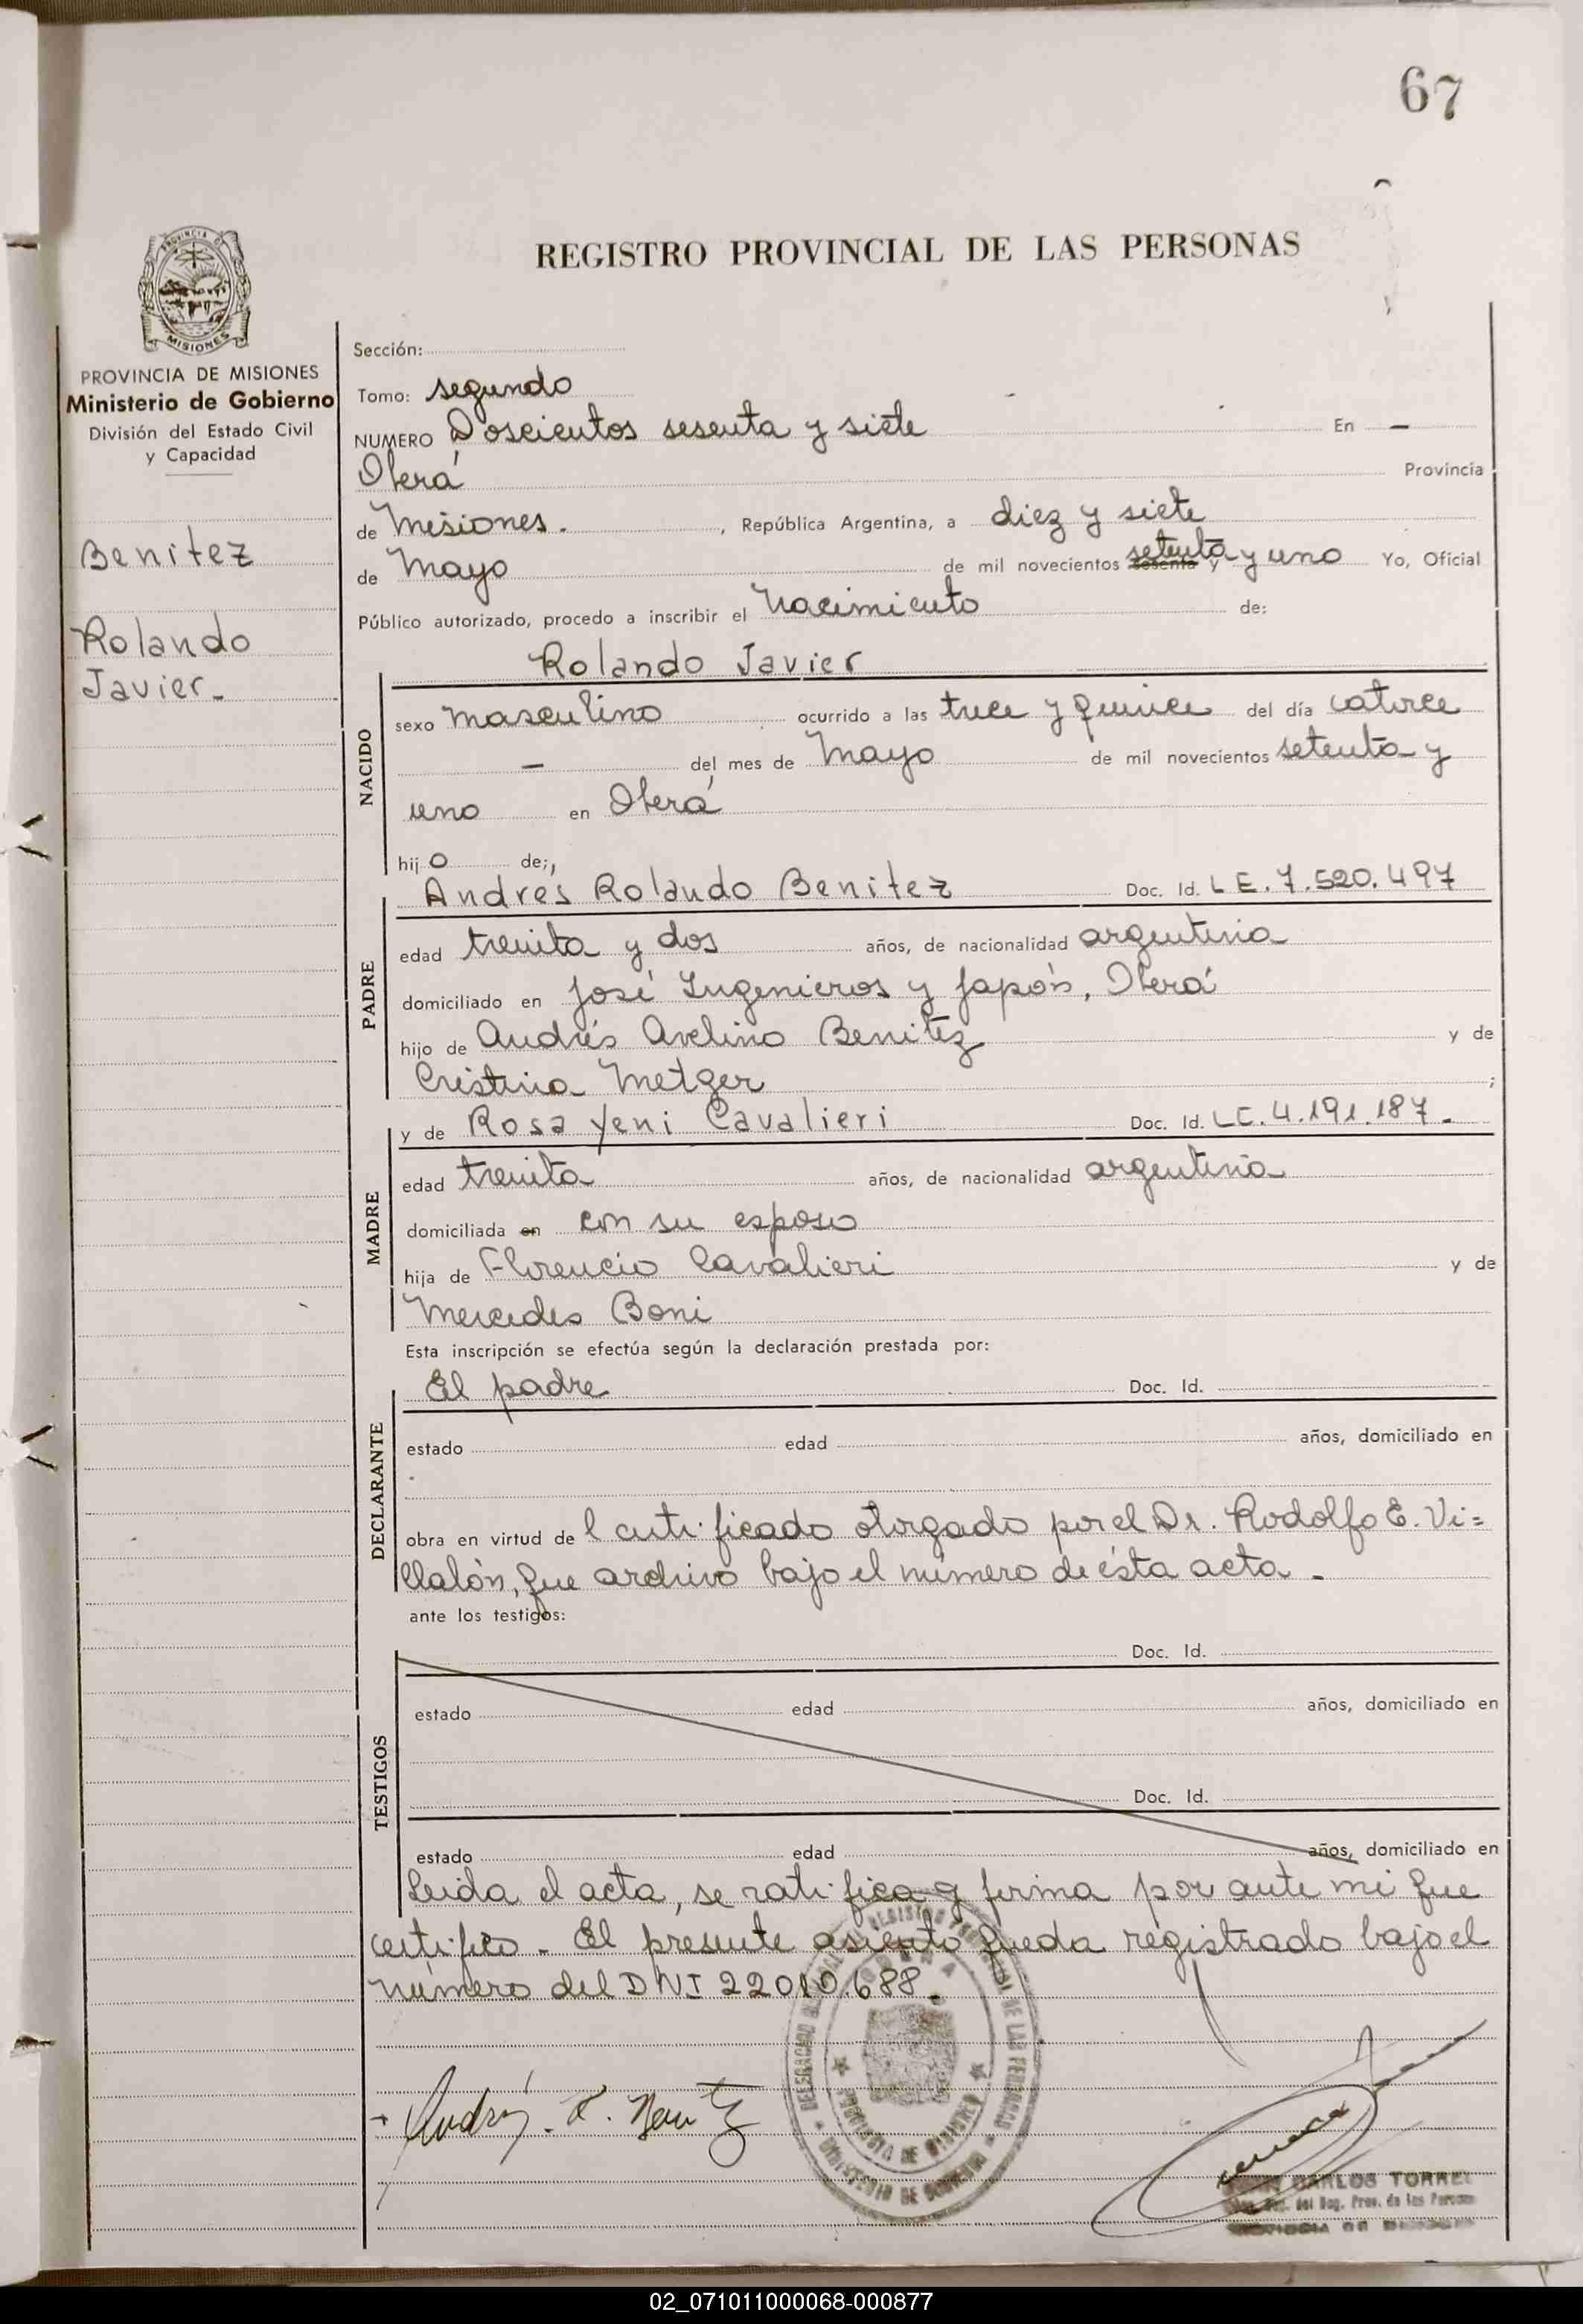 67
REGISTRO PROVINCIAL DE LAS PERSONAS
MISIONES
PROVINCIA DE MISIONES
Ministerio de Gobierno
División del Estado Civil
y Capacidad
Benitez
Rolando
Javier.
Sección:
Tomo: segundo
NUMERO Doscientos sesenta y siete En —
Oberá Provincia
de Misiones. , República Argentina, a diez y siete
de Mayo de mil novecientos sesenta y setenta y uno Yo, Oficial
Público autorizado, procedo a inscribir el Nacimiento de:
Rolando Javier
NACIDO
sexo masculino ocurrido a las trece y quince del día catorce
— del mes de Mayo de mil novecientos setenta y
uno en Oberá
hij o de;,
Andrés Rolando Benitez Doc. Id. L E. 7.520.497
PADRE
edad treinta y dos años, de nacionalidad argentina
domiciliado en José Ingenieros y Japón, Oberá
hijo de Andrés Avelino Benitez y de
Cristina Metger ;
y de Rosa Yeni Cavalieri Doc. Id. LC. 4.191.187.
MADRE
edad treinta años, de nacionalidad argentina
domiciliada en con su esposo
hija de Florencio Cavalieri y de
Mercedes Boni
Esta inscripción se efectúa según la declaración prestada por:
El padre Doc. Id.
DECLARANTE
estado edad años, domiciliado en
obra en virtud de l certificado otorgado por el Dr. Rodolfo E. Vi=
llalón, que archivo bajo el número de ésta acta.
ante los testigos:
Doc. Id.
TESTIGOS
estado edad años, domiciliado en
Doc. Id.
estado edad años, domiciliado en
Leida el acta, se ratifica y firma por ante mi que
certifico. El presente asiento queda registrado bajo el
número del DNI 22010.688.
PROVINCIA DE MISIONES
MINISTERIO DE GOBIERNO
CARLOS TORRES
del Reg. Prov. de las Personas
02_071011000068-000877